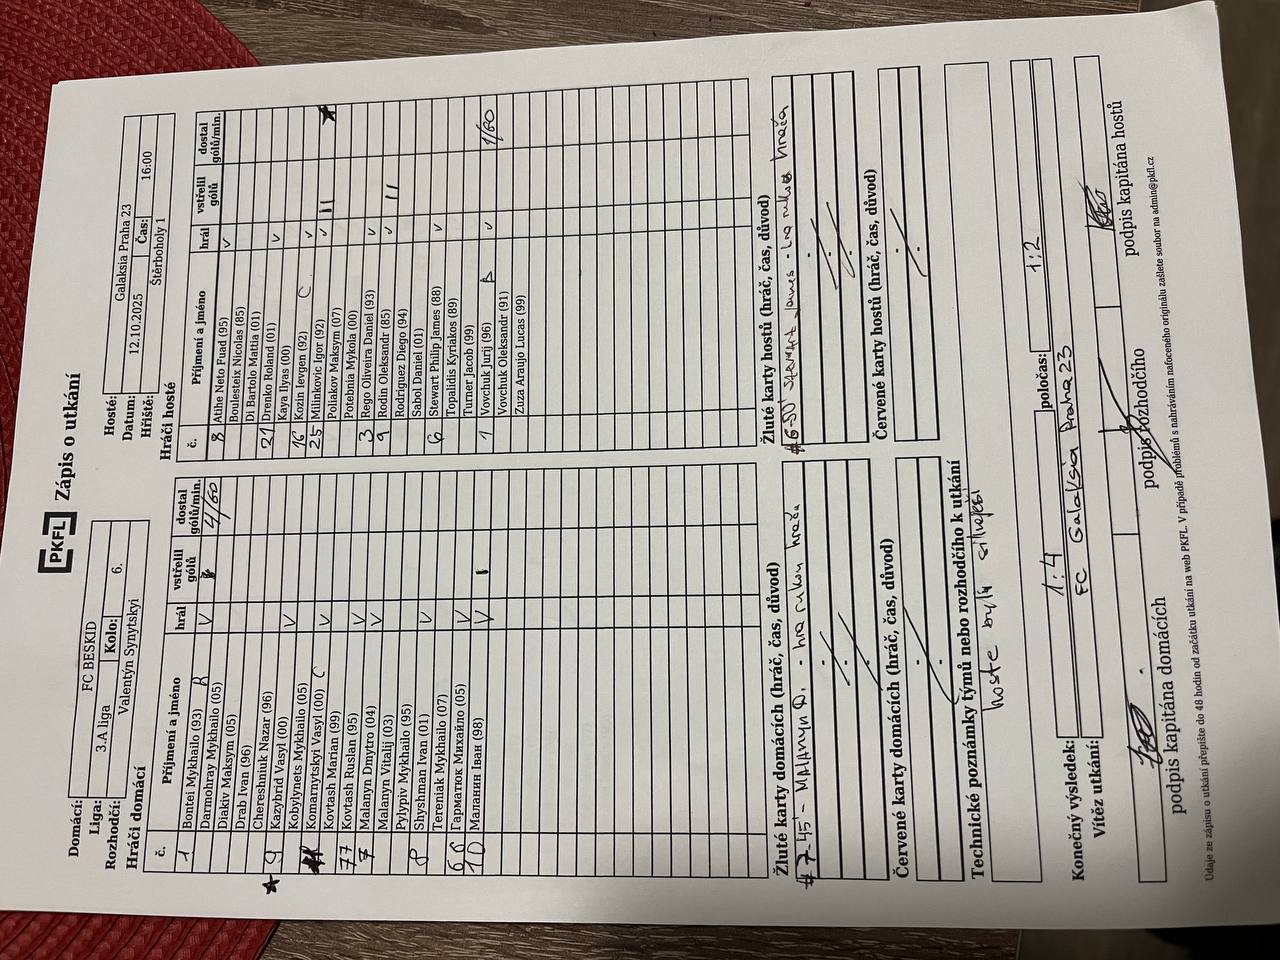 PKFL Zápis o utkání
Domácí: FC BESKID
Liga: 3.A liga Kolo: 6.
Rozhodčí: Valentýn Synytskyi
Hosté: Galaksia Praha 23
Datum: 12.10.2025 Čas: 16:00
Hřiště: Štěrboholy 1
Hráči domácí
č. Příjmení a jméno hrál vstřelil gólů dostal gólů/min.
1 Bontei Mykhailo (93) B V 4/60
Darmohray Mykhailo (05)
Diakiv Maksym (05)
Drab Ivan (96)
Chereshniuk Nazar (96)
9 Kazybrid Vasyl (00) V
Kobylynets Mykhailo (05)
Komarnytskyi Vasyl (00) C V
Kovtash Marian (99)
77 Kovtash Ruslan (95) V
7 Malanyn Dmytro (04) V
Malanyn Vitalij (03)
Pylypiv Mykhailo (95)
8 Shyshman Ivan (01) V
Tereniak Mykhailo (07)
66 Гарматюк Михайло (05) V
10 Маланин Іван (98) V I
Hráči hosté
č. Příjmení a jméno hrál vstřelil gólů dostal gólů/min.
8 Atihe Neto Fuad (95) v
Boulesteix Nicolas (85)
Di Bartolo Mattia (01)
21 Drenko Roland (01) v
Kaya Ilyas (00)
16 Kozin Ievgen (92) C v
25 Milinkovic Igor (92) v II
Poliakov Maksym (07)
Potebnia Mykola (00)
3 Rego Oliveira Daniel (93) v
9 Rodin Oleksandr (85) v II
Rodriguez Diego (94)
Sabol Daniel (01)
6 Stewart Philip James (88) v
Topalidis Kyriakos (89)
Turner Jacob (99)
1 Vovchuk Jurij (96) B v 1/60
Vovchuk Oleksandr (91)
Zuza Araujo Lucas (99)
Žluté karty domácích (hráč, čas, důvod)
#7-45' - MALANYN D. - hra rukou hráče
Červené karty domácích (hráč, čas, důvod)
Žluté karty hostů (hráč, čas, důvod)
#6-50' Stewart James - hra rukou hráče
Červené karty hostů (hráč, čas, důvod)
Technické poznámky týmů nebo rozhodčího k utkání
hoste byly silnejší
Konečný výsledek: 1:4 poločas: 1:2
Vítěz utkání: FC Galaksia Praha 23
podpis kapitána domácích podpis rozhodčího podpis kapitána hostů
Údaje ze zápisu o utkání přepište do 48 hodin od začátku utkání na web PKFL. V případě problémů s nahráváním nafoceného originálu zašlete soubor na admin@pkfl.cz